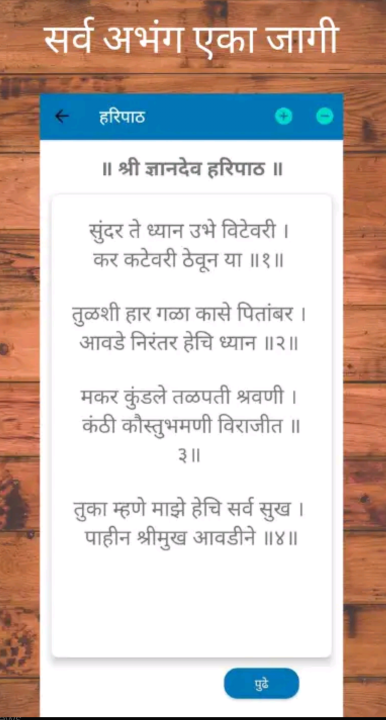 सर्व अभंग एका जागी
हरिपाठ
॥ श्री ज्ञानदेव हरिपाठ ॥
सुंदर ते ध्यान उभे विटेवरी ।
कर कटेवरी ठेवून या ॥१॥
तुळशी हार गळा कासे पितांबर ।
आवडे निरंतर हेचि ध्यान ॥२॥
मकर कुंडले तळपती श्रवणी ।
कंठी कौस्तुभमणी विराजीत ॥
३॥
तुका म्हणे माझे हेचि सर्व सुख ।
पाहीन श्रीमुख आवडीने ॥४॥
पुढे